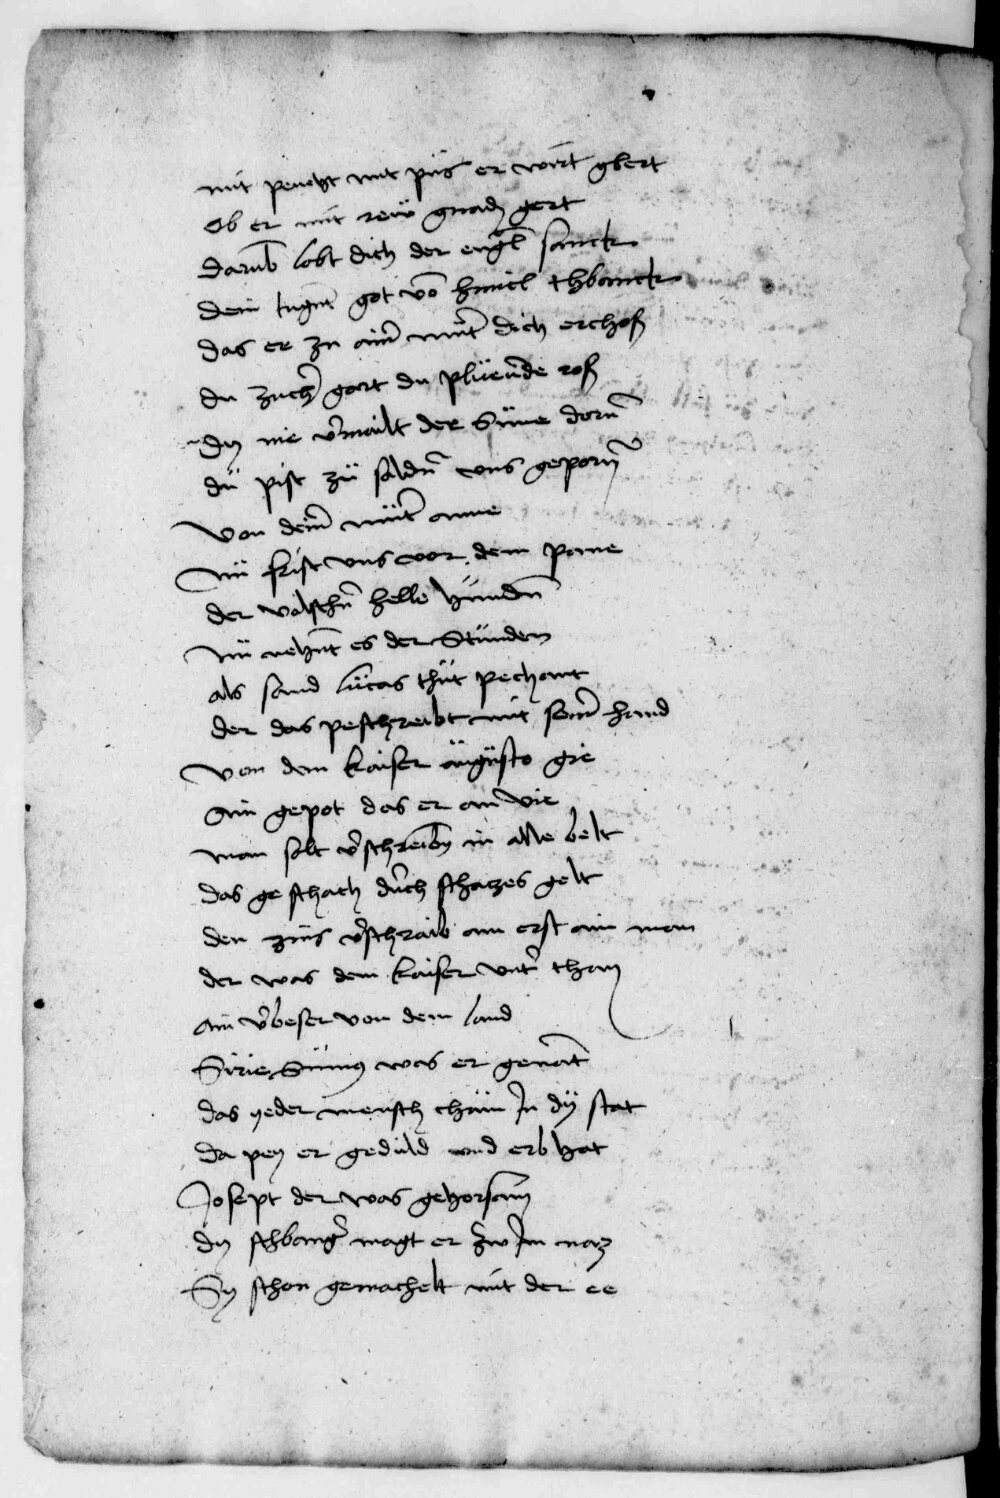 mit peucht mit puͦs er wirt gbert
Ob er mit reẅ gnadn gert
Darub̄ lobt dich der engl̄ sanck
Dein tugnt̄ got vō himel thbanck
das er zu aim̄ mut̄ dich erchoß
du zuch̄ gart du plüende roß
Dy nie v̄mailt der Süne dorn̄
dü pist zü saldn̄ vns geporn̄
Von deim̄ müt̄ anne
Nü frist vns vor dem pane
der valschn̄ helle hündn̄
Nü nehnt̄ es der Stünden
als sand lücas thüt pechant
der das peschreibt mit seim̄ hand
Von dem kaiser augüsto gie
Ain gepot das er an vie
man solt v̄schreibn̄ in alle belt
das geschach dürch schatzes gelt
den zins v̄schraib am erst ain man
der was dem kaiser vnt̄ than
Ain v̄beser von dem land
Sirie, Sirinus was er genant̄
das yeder mensch chäm In dy̆ stat
da pey er gedüld vnd erb hat
Josept der was gehorsam
dy schbang̃ magt er zw Im nam
Sy schon gemachelt mit der ee